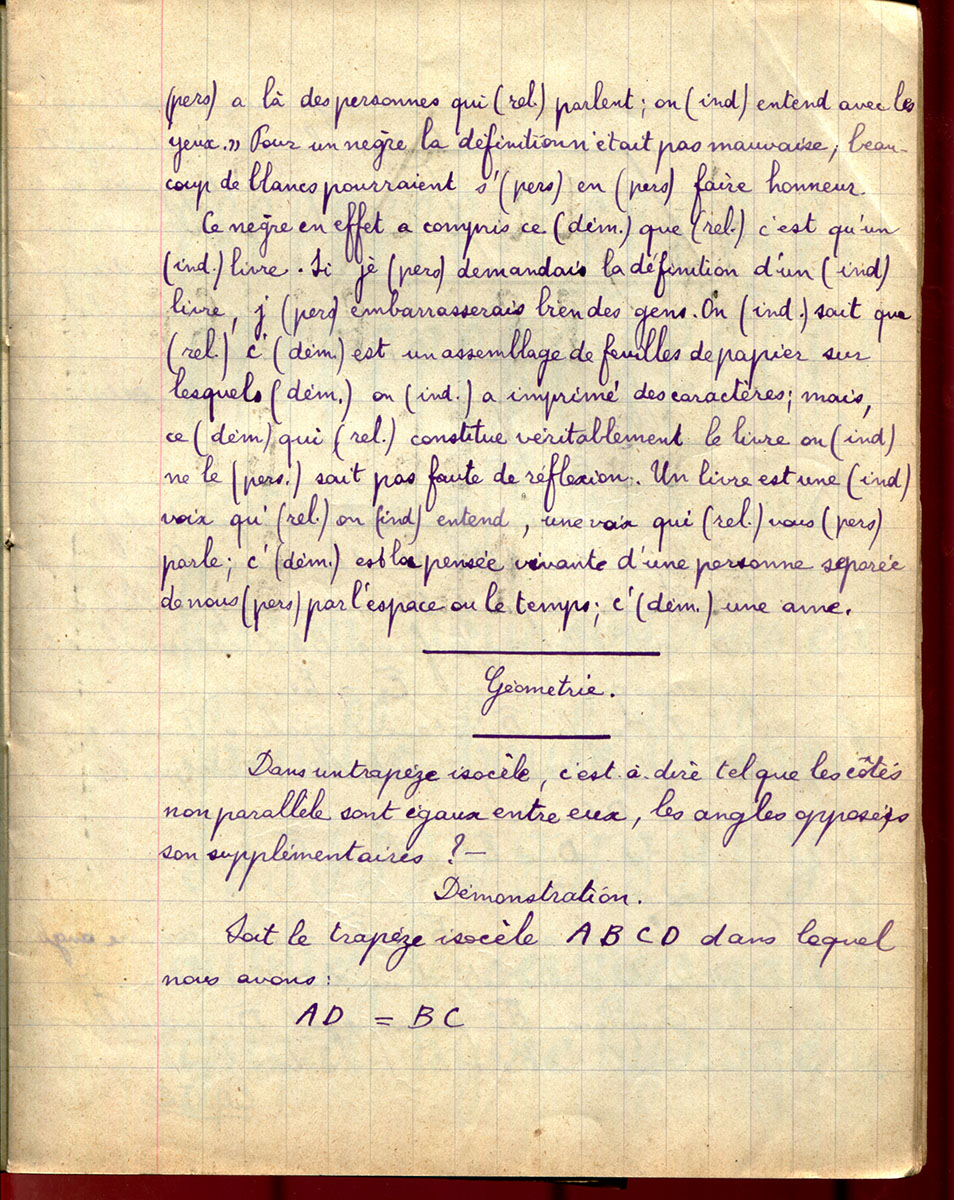 (pers) a là des personnes qui (rel.) parlent; on (ind) entend avec les
yeux.» Pour un nègre la définition n'était pas mauvaise, beau-
coup de blancs pourraient s'(pers) en (pers) faire honneur.
Ce nègre en effet a compris ce (dém.) que (rel.) c'est qu'un
(ind.) livre. Si je (pers) demandais la définition d'un (ind)
livre, j' (pers) embarrasserais bien des gens. On (ind.) sait que
(rel.) c' (dém.) est un assemblage de feuilles de papier sur
lesquels (dém.) on (ind.) a imprimé des caractères; mais,
ce (dém) qui (rel.) constitue véritablement le livre on (ind)
ne le (pers.) sait pas faute de réflexion. Un livre est une (ind)
voix qu' (rel.) on (ind) entend, une voix qui (rel.) vous (pers)
parle; c' (dém.) est la pensée vivante d'une personne séparée
de nous (pers) par l'espace ou le temps; c' (dém.) une ame.
Géométrie.
Dans un trapèze isocèle, c'est-à-dire tel que les côtés
non parallèle sont égaux entre eux, les angles opposés
son supplémentaires ?—
Démonstration.
Soit le trapèze isocèle A B C D dans lequel
nous avons:
AD = BC